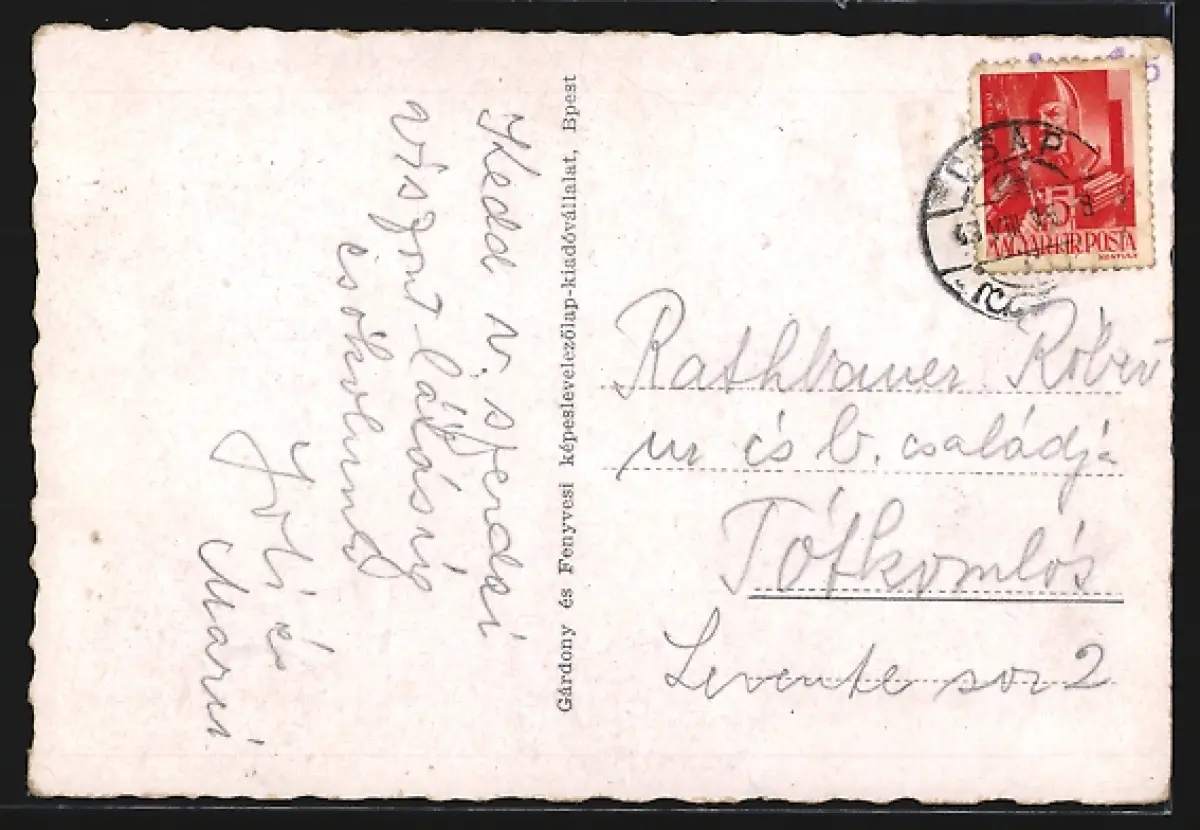 Kedd v. szerdai
viszont látásig
csókolunk
Joli és
Marri
Gárdony és Fenyvesi képeslevelezőlap-kiadóvállalat, Bpest
CSAP
5
MAGYAR KIR. POSTA
Rathbauer Róbert
ur és b. családja
Tótkomlós
Levente sor 2